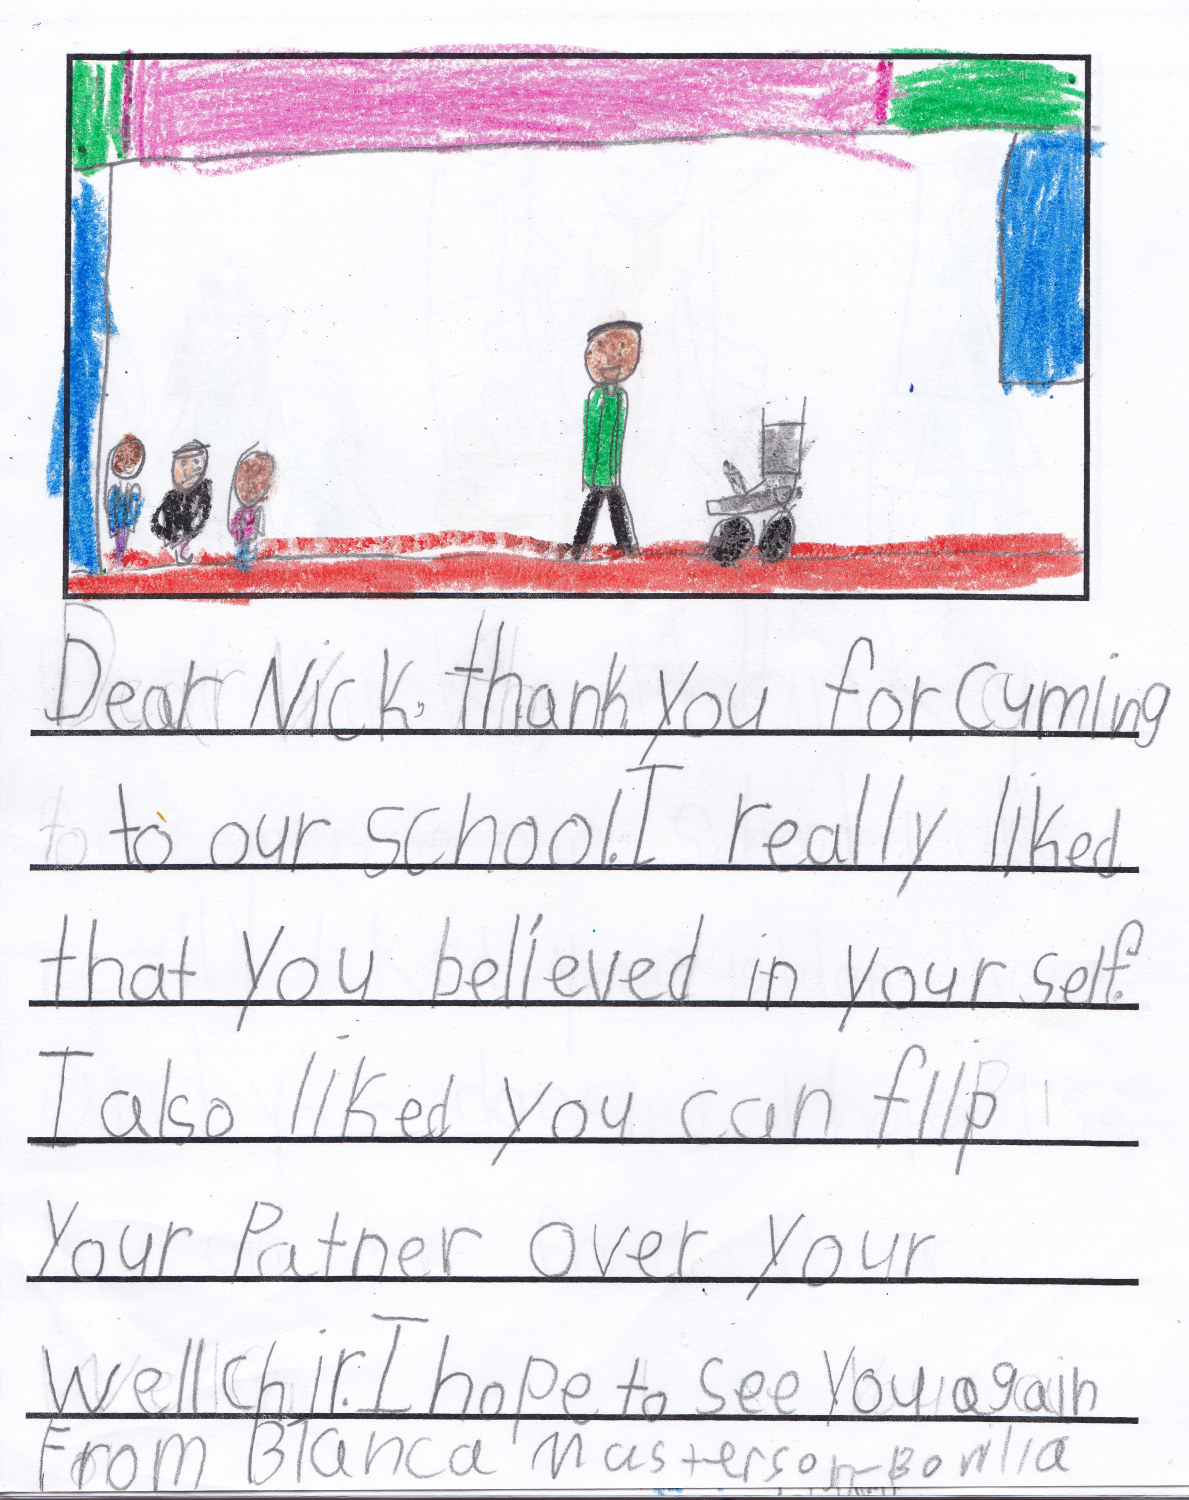 Dear Nick, thank you for cuming
to our school. I really liked
that you believed in your self.
I also liked you can flip
your Patner over your
wellchir. I hope to see you again
From Blanca Masterson-Bonilla